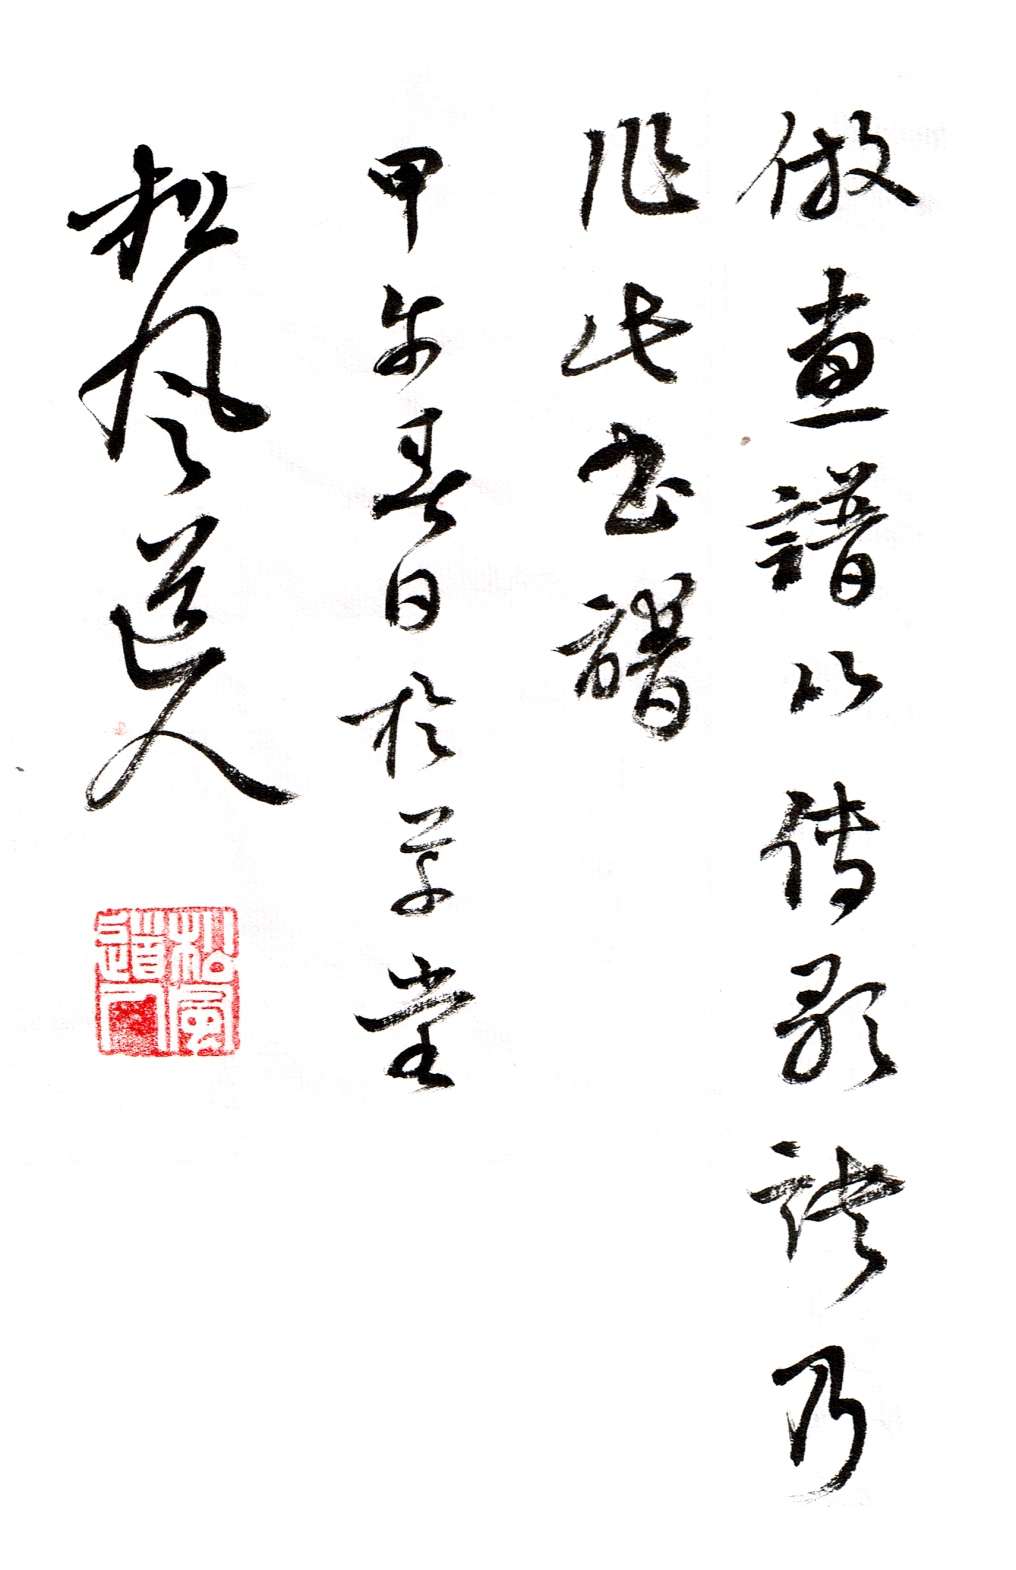 倣畫譜以傳歌訣乃
作此書譜
甲午春日於草堂
松風道人
松風
道人